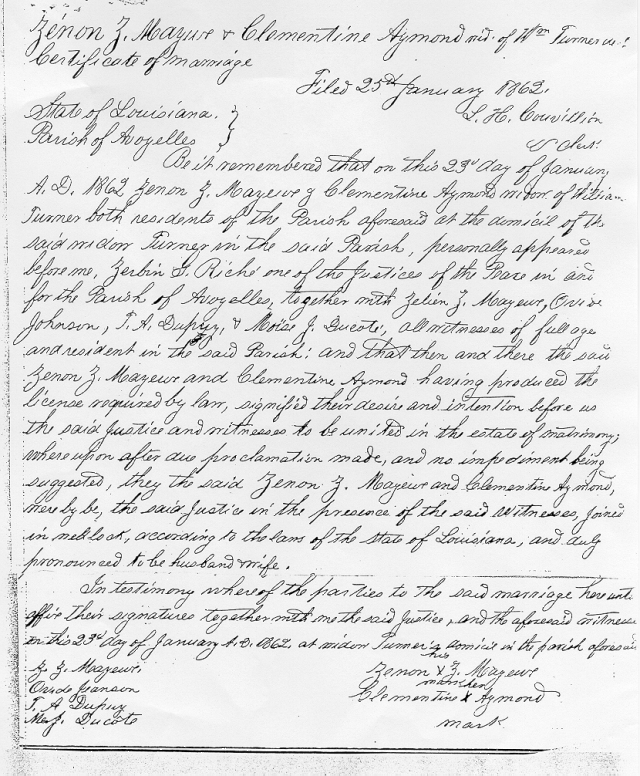 Zénon Z. Mayeux & Clementine Aymond wid. of Wm Turner
Certificate of marriage
Filed 25th January 1862.
L. H. Couvillion
State of Louisiana. }
Parish of Avoyelles }
Be it remembered that on this 23d day of January
A. D. 1862 Zenon Z. Mayeux & Clementine Aymond widow of William
Turner both residents of the Parish aforesaid at the domicil of the
said widow Turner in the said Parish, personally appeared
before me, Zerbin G. Riché one of the Justices of the Peace in and
for the Parish of Avoyelles, together with Zelien Z. Mayeux, Ovide
Johnson, T. A. Dupuy, & Moïse J. Ducote, all witnesses of full age
and resident in the said Parish: and that then and there the said
Zenon Z. Mayeux and Clementine Aymond having produced the
license required by law, signified their desire and intention before us
the said Justice and witnesses to be united in the estate of matrimony;
whereupon after due proclamation made, and no impediment being
suggested, they the said Zenon Z. Mayeux and Clementine Aymond,
were by be, the said Justice in the presence of the said Witnesses, joined
in wedlock, according to the laws of the State of Louisiana, and duly
pronounced to be husband & wife.
In testimony whereof the parties to the said marriage hereunto
affix their signatures together with me the said Justice, and the aforesaid witnesses
on this 23d day of January A. D. 1862. at widow Turner's domicil in the parish aforesaid
Z. Z. Mayeux
his
Zenon X Z. Mayeux
mark her
Ovide Jeanson
Clementine X Aymond
T. A. Dupuy
mark
M. J. Ducote